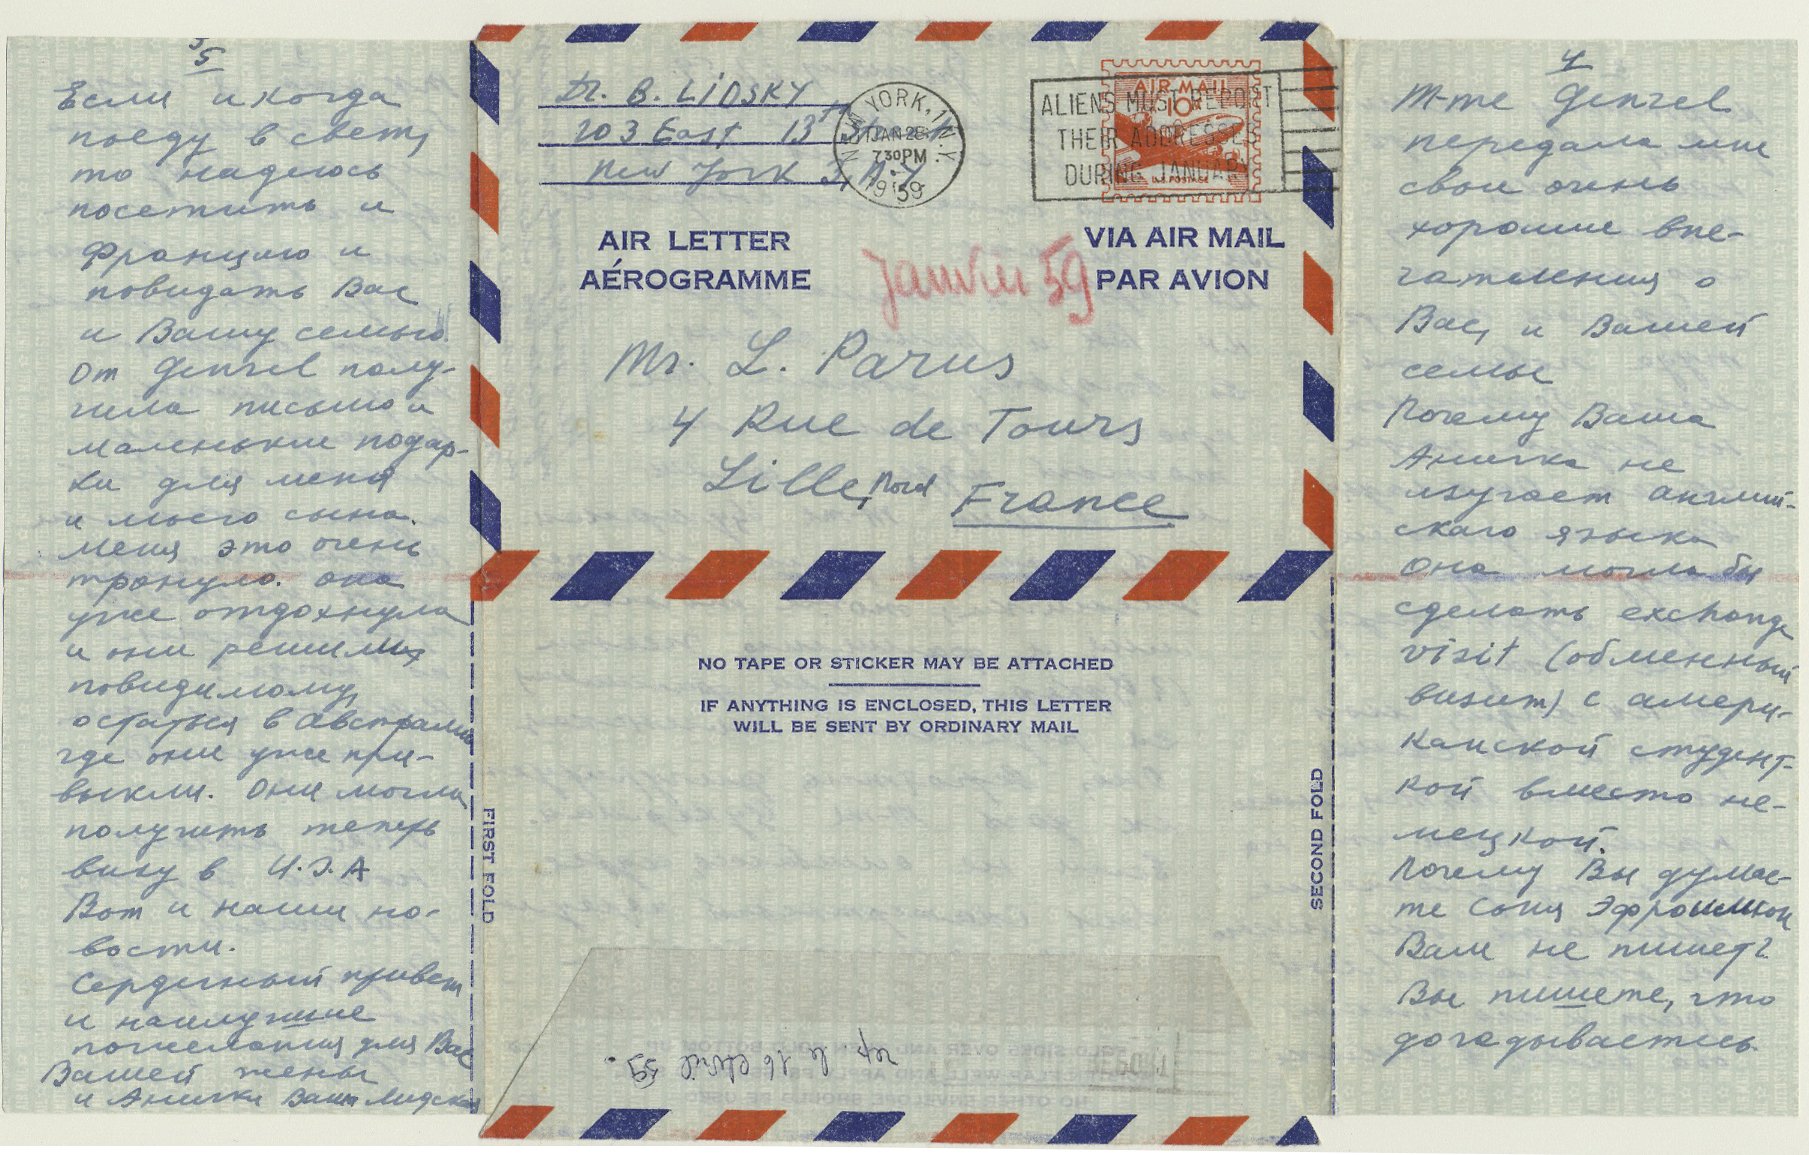 5
Если и когда
поеду в светъ,
то надеюсь
посетить и
Францию и
повидать Вас
и Вашу семью.
От Genzel полу-
чила письмо и
маленькие подар-
ки для меня
и моего сына.
меня это очень
тронуло. она
уже отдохнула
и они решили
повидимому,
остаться в Австралии
где они уже при-
выкли. Они могли
получить теперь
визу в U.S.A
Вот и наши но-
вости.
Сердечный привет
и наилучшие
пожелания для Вас
Вашей жены
и Анички Ваша Лидская
Dr. B. LIDSKY
203 East 13 St
New York 3, N.Y
NEW YORK, N.Y.
JAN 28
7 30 PM
1959
ALIENS MUST REPORT
THEIR ADDRESSES
DURING JANUARY
AIR MAIL
10¢
U.S. POSTAGE
AIR LETTER
AÉROGRAMME
VIA AIR MAIL
PAR AVION
Janvier 59
Mr. L. Parus
4 Rue de Tours
Lille, Nord France
NO TAPE OR STICKER MAY BE ATTACHED
IF ANYTHING IS ENCLOSED, THIS LETTER
WILL BE SENT BY ORDINARY MAIL
FIRST FOLD
SECOND FOLD
rep le 16 59.
4
M-me Genzel
передала мне
свои очень
хорошие впе-
чатления о
Вас, и Вашей
семье
Почему Ваша
Аничка не
изучает англий-
скаго языка
Она могла бы
сделать exchange
visit (обменный
визит) с амери-
канской студент-
кой вместо не-
мецкой.
Почему Вы думае-
те Соня Эфроимсон
Вам не пишет?
Вы пишете, что
догадываетесь.